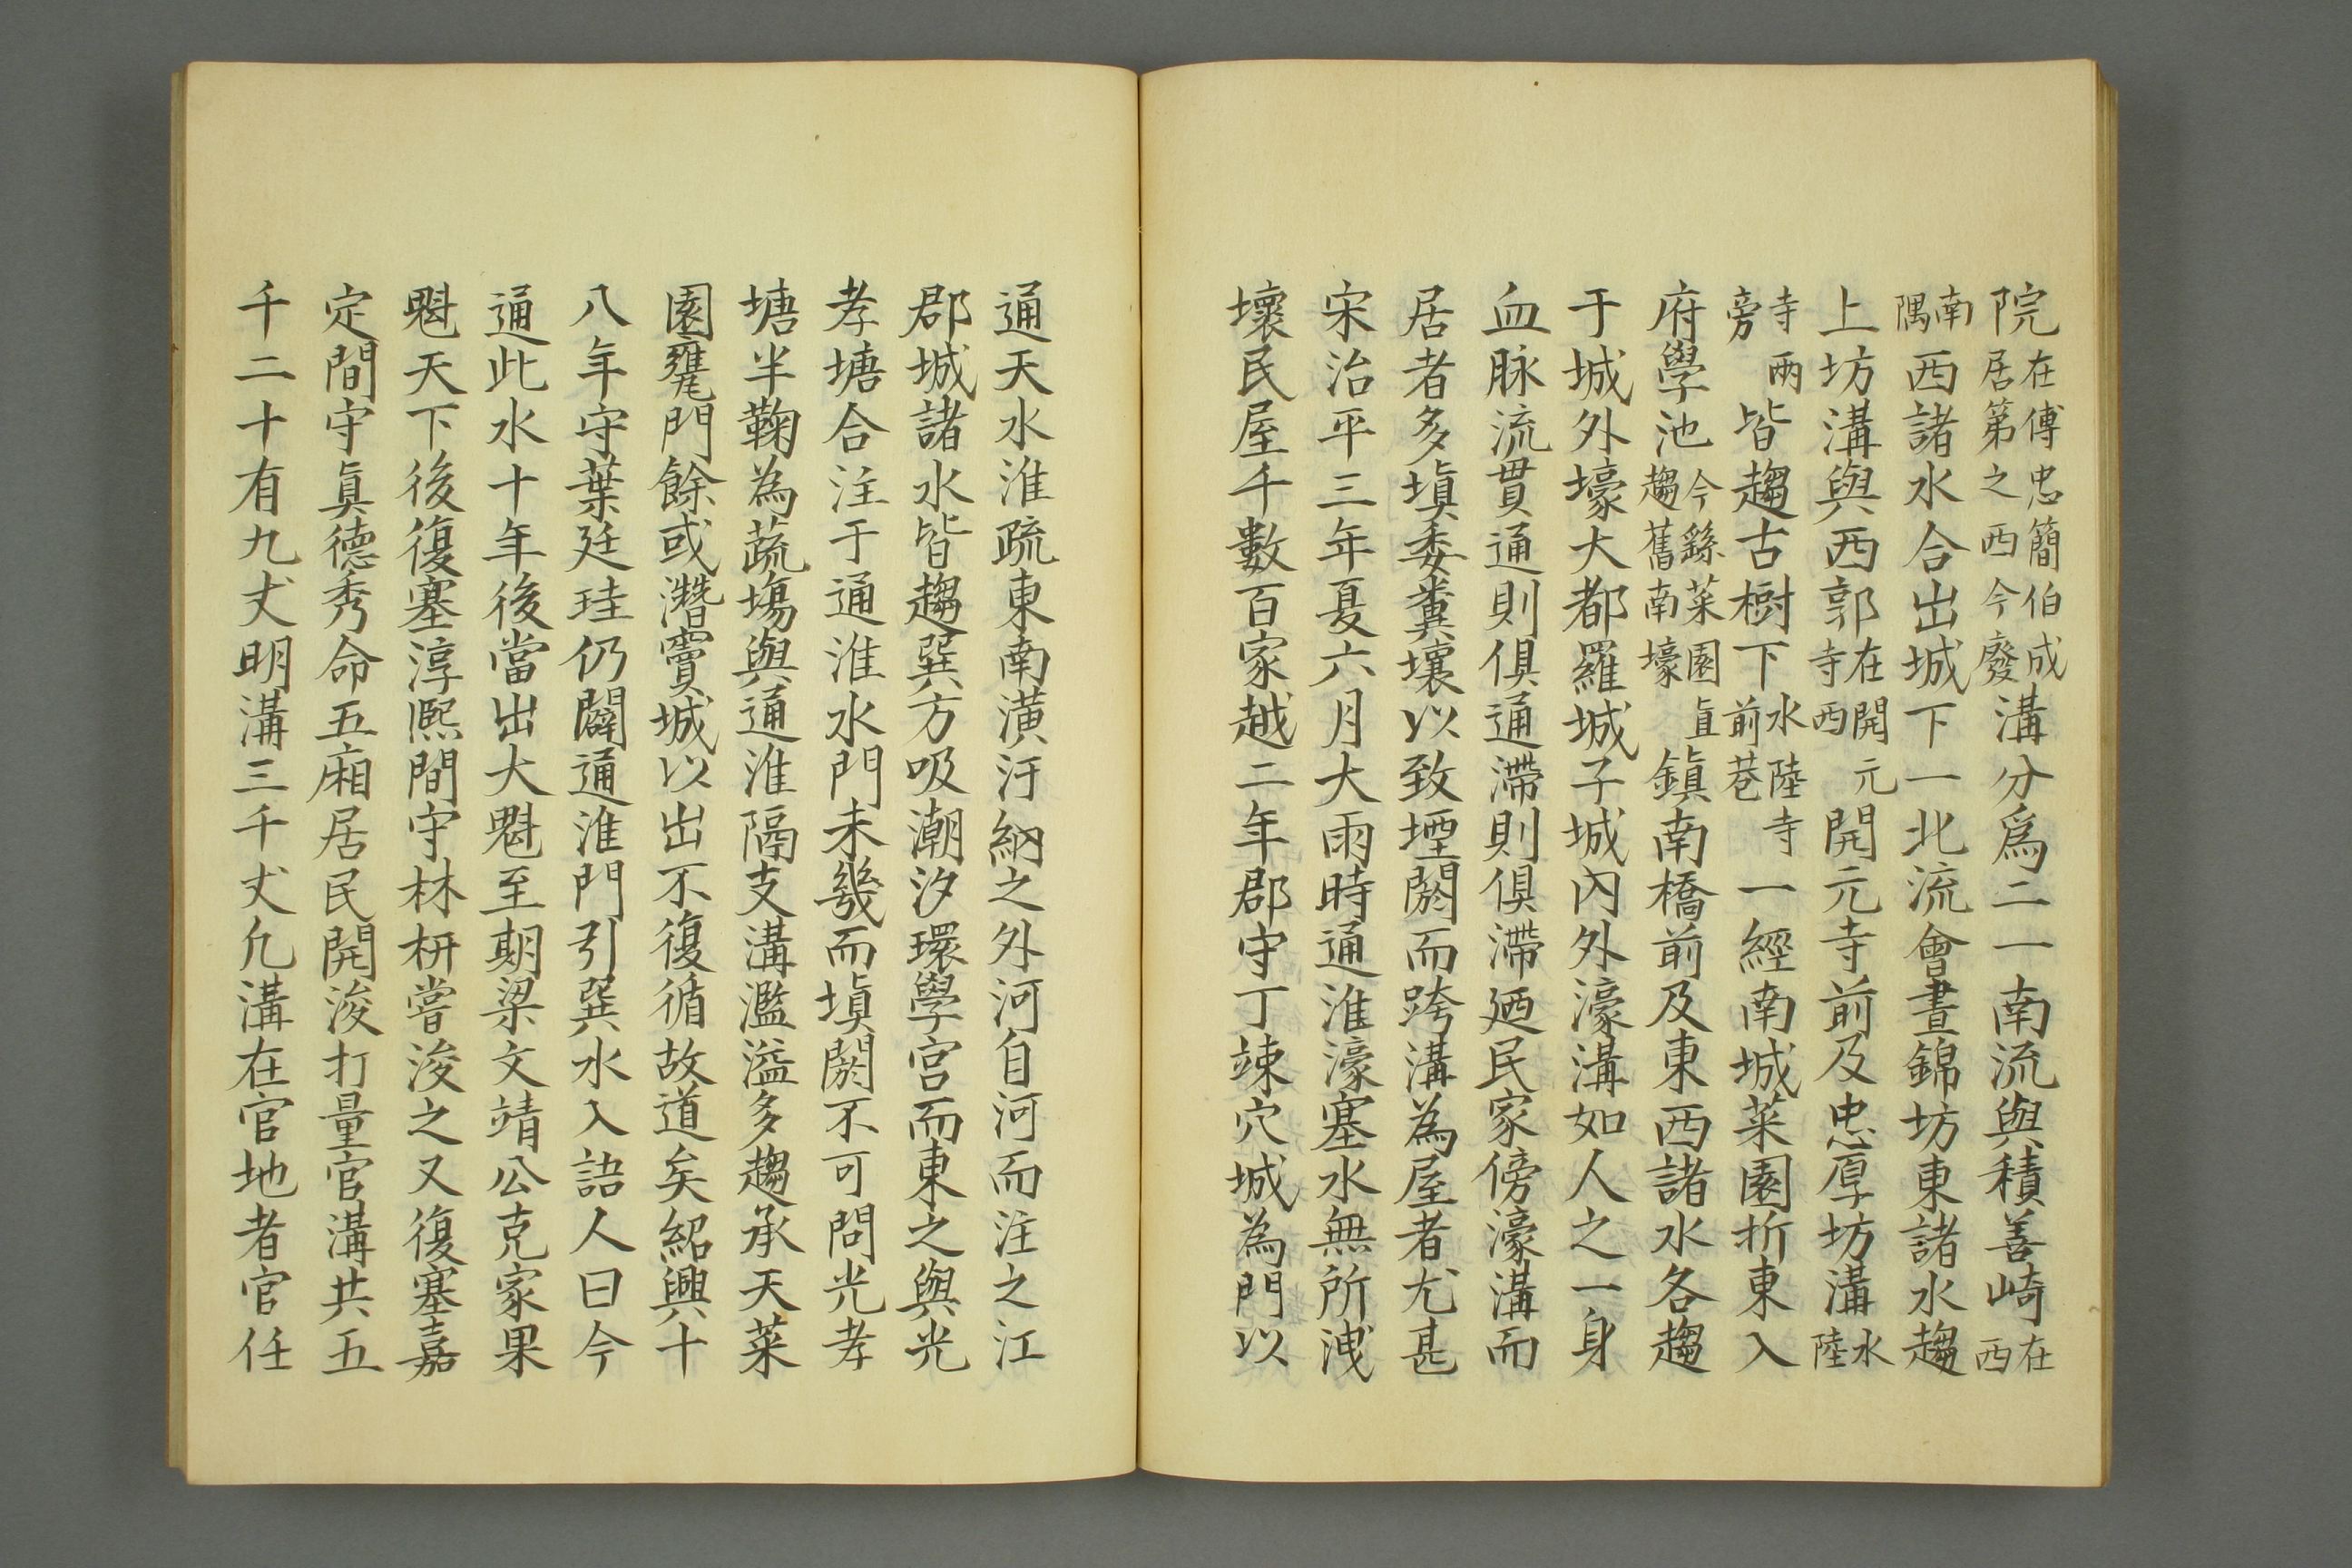 院在傅忠簡伯成居第之西今廢溝分爲二一南流與積善崎在西
南隅西諸水合出城下一北流會晝錦坊東諸水趨
上坊溝與西郭在開元寺西開元寺前及忠厚坊溝水陸
寺兩旁皆趨古樹下水陸寺前巷一經南城菜園折東入
府學池今繇菜園直趨舊南壕鎮南橋前及東西諸水各趨
于城外壕大都羅城子城內外濠溝如人之一身
血脉流貫通則俱通滯則俱滯廼民家傍濠溝而
居者多塡委糞壤以致堙閼而跨溝為屋者尤甚
宋治平三年夏六月大雨時通淮濠塞水無所洩
壞民屋千數百家越二年郡守丁竦穴城為門以
通天水淮疏東南潢汙納之外河自河而注之江
郡城諸水皆趨巽方吸潮汐環學宮而東之與光
孝塘合注于通淮水門未幾而塡閼不可問光孝
塘半鞠為蔬塲與通淮隔支溝濫溢多趨承天菜
園甕門餘或潛竇城以出不復循故道矣紹興十
八年守葉廷珪仍闢通淮門引巽水入語人曰今
通此水十年後當出大魁至期梁文靖公克家果
魁天下後復塞淳熈間守林枅嘗浚之又復塞嘉
定間守眞德秀命五廂居民開浚打量官溝共五
千二十有九𠀋明溝三千𠀋凣溝在官地者官任